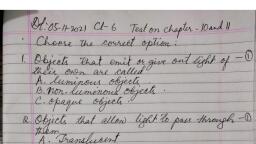 Dt: 05-11-2021 Cl-6 Test on chapter-10 and 11
Choose the correct option:
1. Objects that emit or give out light of -①
their own are called
A. luminous objects.
B. non-lumonous objects.
C. opaque objects.
2. Objects that allow light to pass through -①
them
A. Translucent